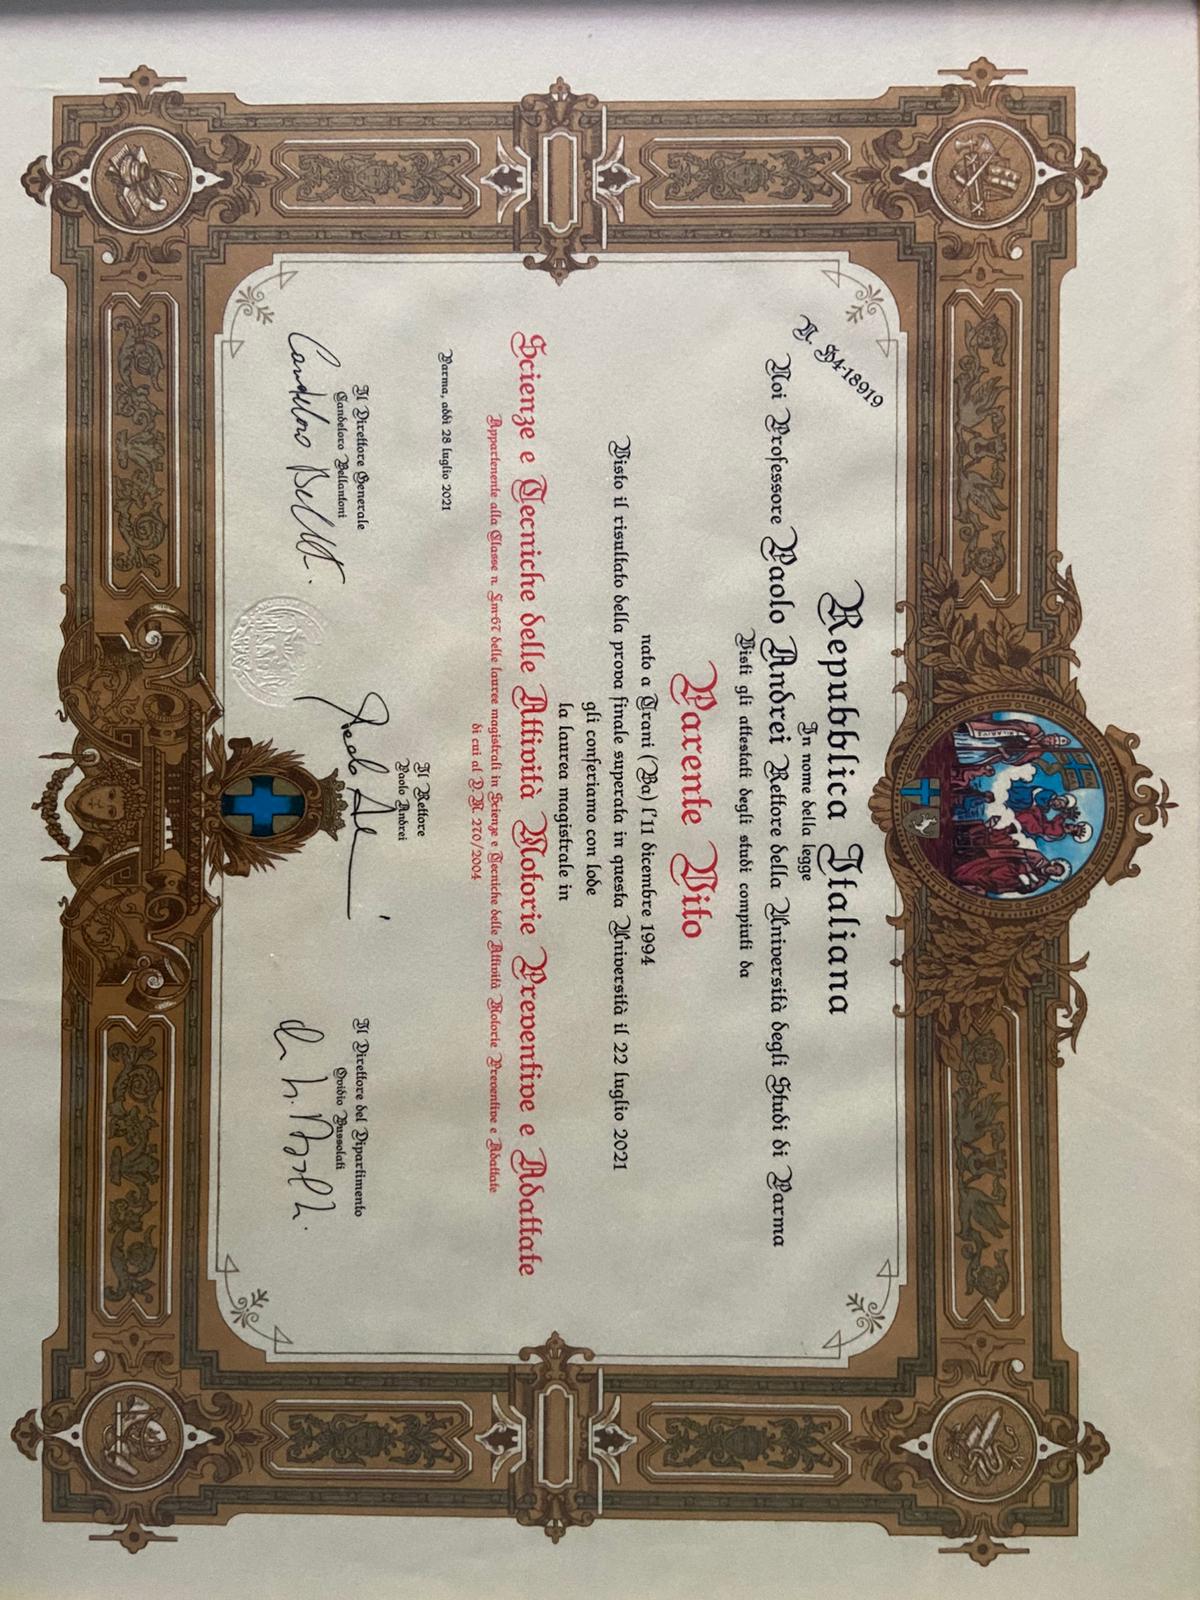 N. S4-18919
Repubblica Italiana
In nome della legge
Noi Professore Paolo Andrei Rettore della Università degli Studi di Parma
Visti gli attestati degli studi compiuti da
Parente Vito
nato a Trani (Ba) l'11 dicembre 1994
Visto il risultato della prova finale superata in questa Università il 22 luglio 2021
gli conferiamo con lode
la laurea magistrale in
Scienze e Tecniche delle Attività Motorie Preventive e Adattate
Appartenente alla Classe n. Lm-67 delle lauree magistrali in Scienze e Tecniche delle Attività Motorie Preventive e Adattate
di cui al D.M. 270/2004
Parma, addì 28 luglio 2021
Il Direttore Generale
Candeloro Bellantoni
Il Rettore
Paolo Andrei
Il Direttore del Dipartimento
Ovidio Bussolati